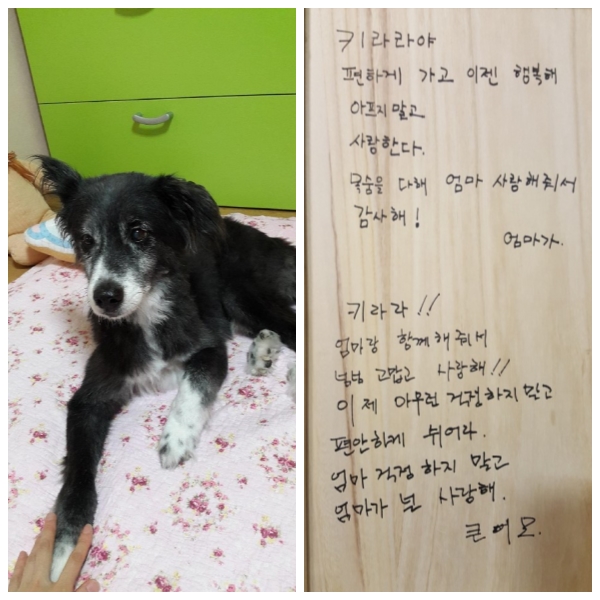 키라라야
편하게 가고 이젠 행복해
아프지말고
사랑한다.
목숨을 다해 엄마 사랑해줘서
감사해!
엄마가.
키라라!!
엄마랑 함께해줘서
넘넘 고맙고 사랑해!!
이제 아무런 걱정하지말고
편안하게 쉬어라.
엄마 걱정하지 말고
엄마가 널 사랑해.
큰이모.